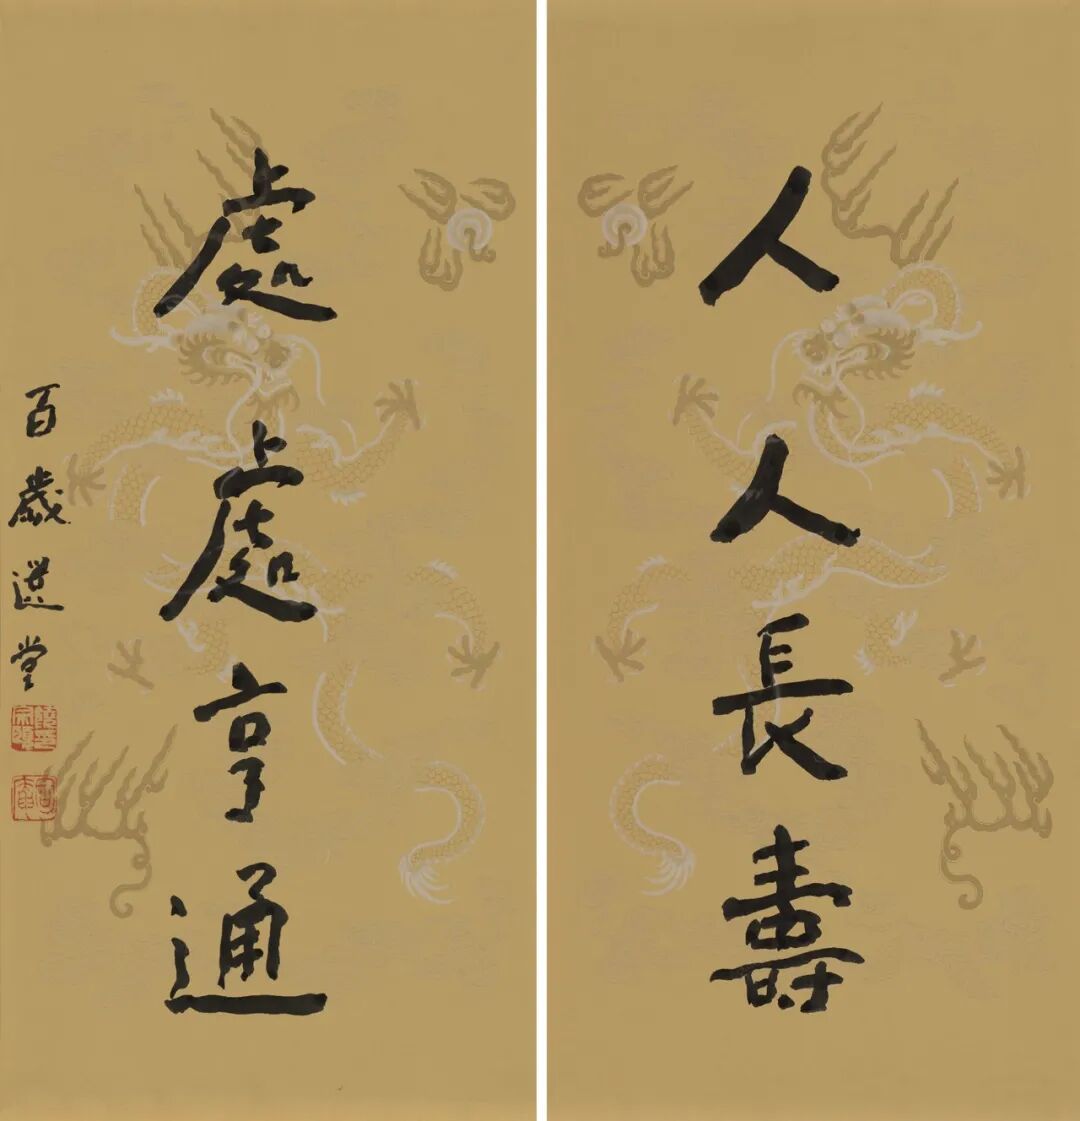 人人長壽
處處亨通
百歲選堂